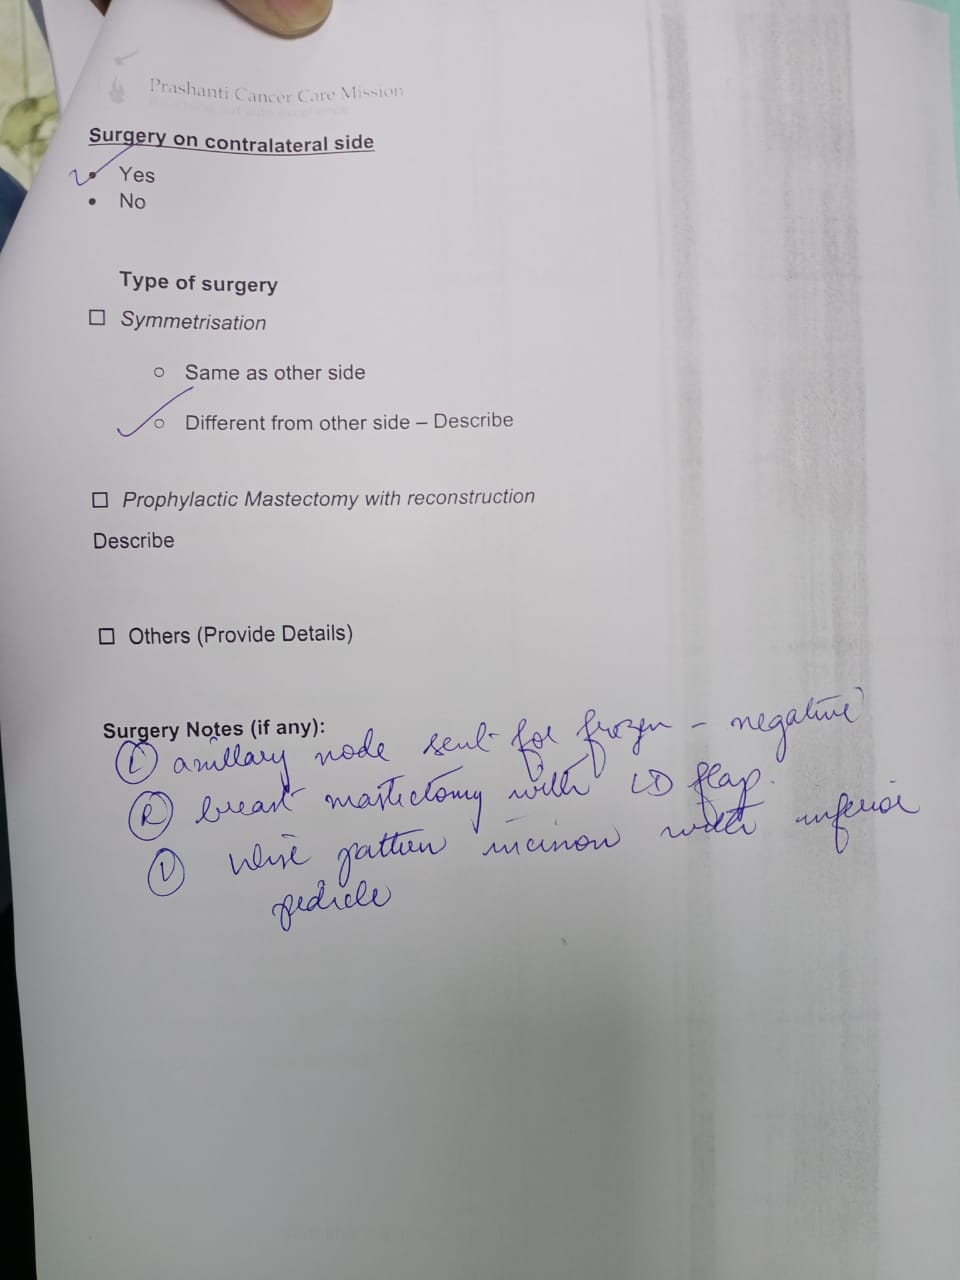 Prashanti Cancer Care Mission
Surgery on contralateral side
• Yes
• No
Type of surgery
☐ Symmetrisation
○ Same as other side
○ Different from other side – Describe
☐ Prophylactic Mastectomy with reconstruction
Describe
☐ Others (Provide Details)
Surgery Notes (if any):
Ⓛ axillary node sent for frozen - negative
Ⓡ breast mastectomy with LD flap.
Ⓛ Wise pattern incision with inferior
pedicle